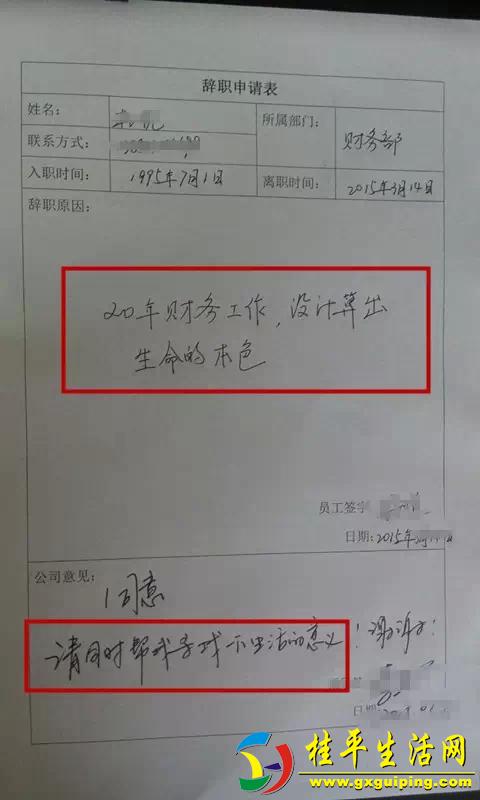 辞职申请表
姓名：
所属部门：
财务部
联系方式：
入职时间：
1995年7月1日
离职时间：
2015年3月14日
辞职原因：
20年财务工作，没计算出
生命的本色
员工签字
日期：2015年
公司意见：
同意
请同时帮我寻找一下生活的意义！谢谢！
日期
桂平生活网
www.gxguiping.com